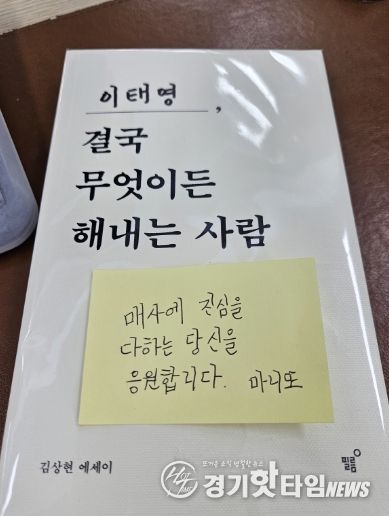 이태영,
결국
무엇이든
해내는 사람
매사에 진심을
다하는 당신을
응원합니다. 마니또
김상현 에세이
필름
HOT TIME
뜨거운 소식 빵빵한 뉴스
경기핫타임NEWS